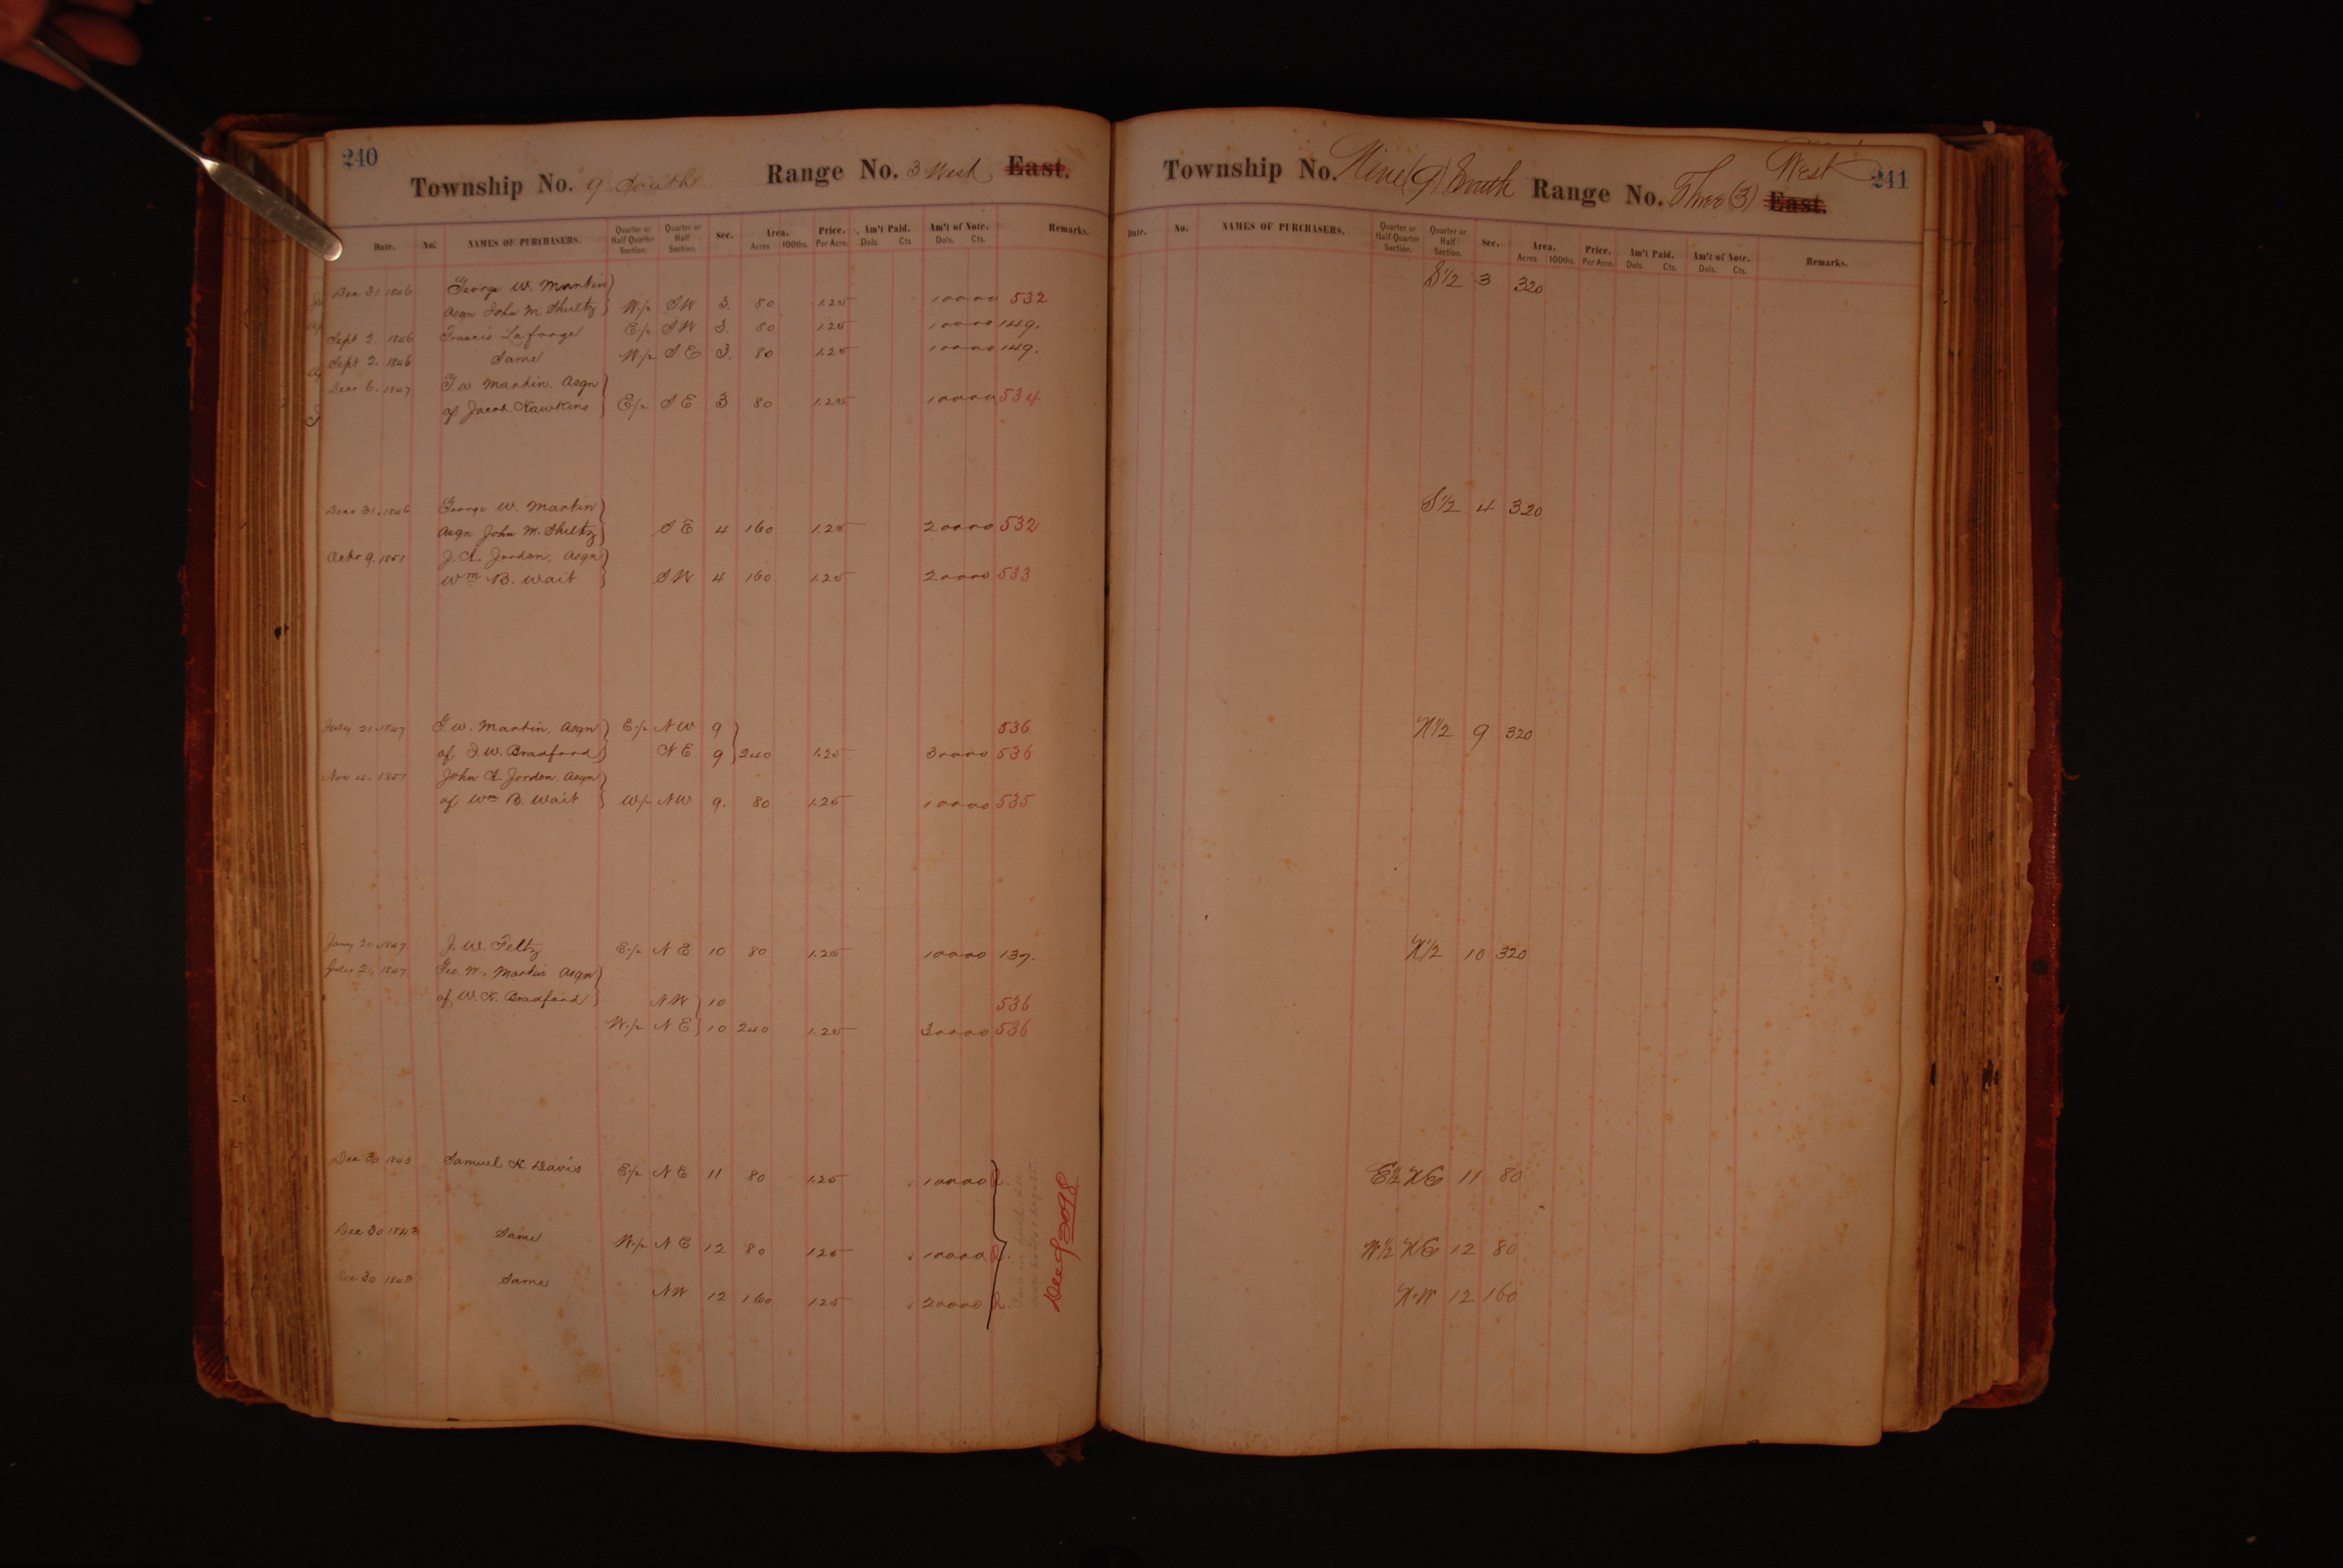 240
Township No. 9 South Range No. 3 West East.
Date. No. NAMES OF PURCHASERS. Quarter or Half Quarter Section. Quarter or Half Section. Sec. Area. Acres 100ths. Price. Per Acre. Am't Paid. Dols. Cts. Am't of Note. Dols. Cts. Remarks.
Decr 31 1846 George W. Martin
Asgn John M. Shultz W½ SW 3. 80 1.25 10000 532
Sept 2. 1846 Francis Laforge E½ SW 3. 80 1.25 10000 149.
Sept 2. 1846 Same W½ SE 3. 80 1.25 10000 149.
6. 1847 G. W. Martin. Asgn
of Jacob Hawkins E½ SE 3 80 1.25 10000 534
Decr 31. 1846 George W. Martin
Asgn John M. Shultz SE 4 160 1.25 20000 532
Octr 9. 1851 J. A. Jordon, Asgn
Wm B. Wait SW 4 160 1.25 20000 533
July 21. 1847 G. W. Martin, Asgn E½ NW 9 536
of J. W. Bradford NE 9 240 1.25 30000 536
Nov 4. 1851 John A. Jordon. Asgn
of Wm B. Wait W½ NW 9. 80 1.25 10000 535
Jany 20. 1847 J. W. Feltz E½ NE 10 80 1.25 10000 137.
July 1847 Geo. W. Martin Asgn
of W. H. Bradford NW 10 536
W½ NE 10 240 1.25 30000 536
Dec 30 1843 Samuel H. Davis E½ NE 11 80 1.25 10000
Dec 30 1843 Same W½ NE 12 80 125 10000
Dec 30 1843 Same NW 12 160 125 20000
241
Township No. Nine (9) South Range No. Three (3) West East.
Date. No. NAMES OF PURCHASERS. Quarter or Half Quarter Section. Quarter or Half Section. Sec. Area. Acres 100ths. Price. Per Acre. Am't Paid. Dols. Cts. Am't of Note. Dols. Cts. Remarks.
S½ 3 320
S½ 4 320
N½ 9 320
N½ 10 320
E½ NE 11 80
W½ NE 12 80
N.W 12 160